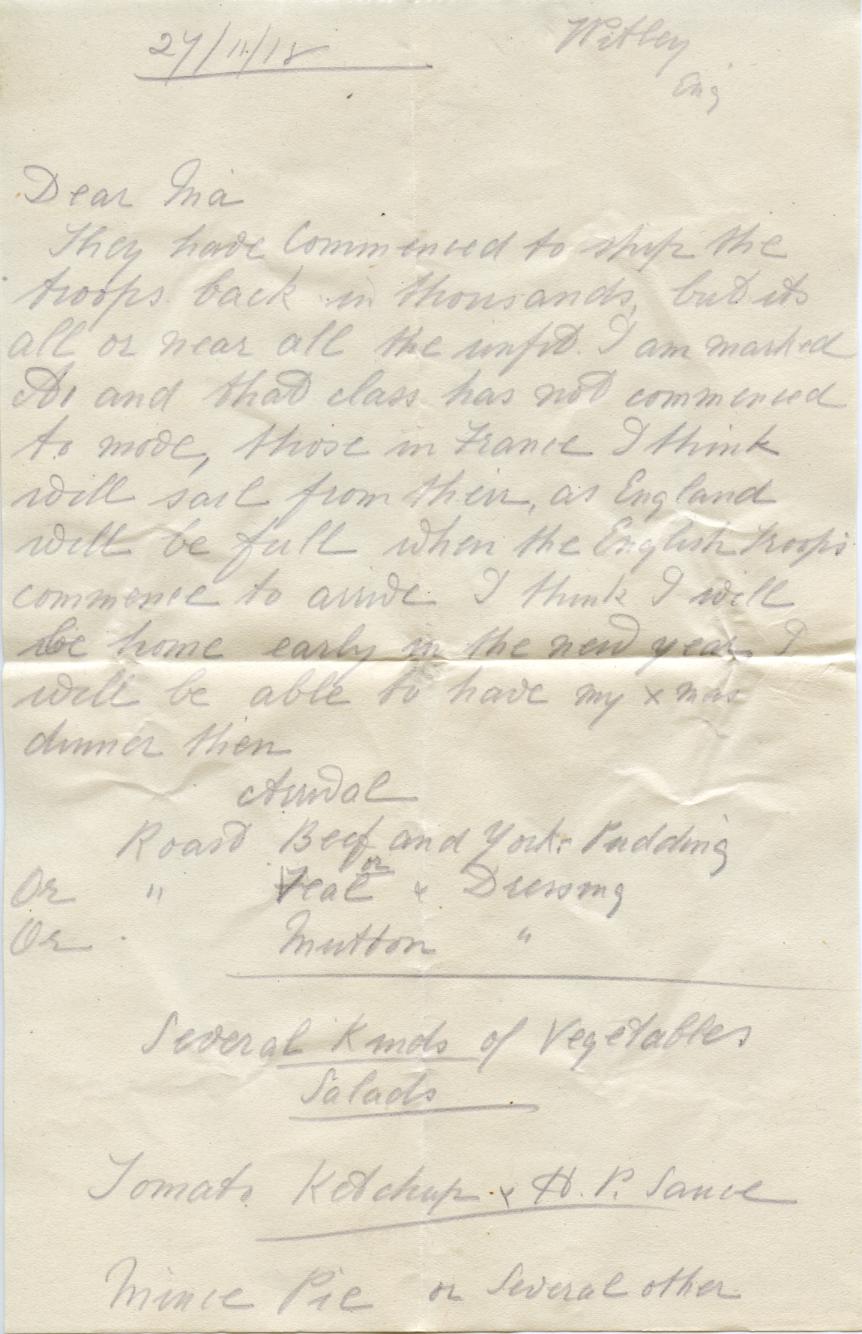 27/11/18 Witley
Eng
Dear Ma
They have commenced to ship the
troops back in thousands, but its
all or near all the unfit. I am marked
A1 and that class has not commenced
to move, those in France I think
will sail from their, as England
will be full when the English troops
commence to arrive I think I will
be home early in the new year, I
will be able to have my xmas
dinner then
Arrival
Roast Beef and York: Pudding
or
Or " Veal & Dressing
Or " Mutton "
Several Kinds of Vegetables
Salads
Tomato Ketchup & H.P. Sauce
Mince Pie or Several other